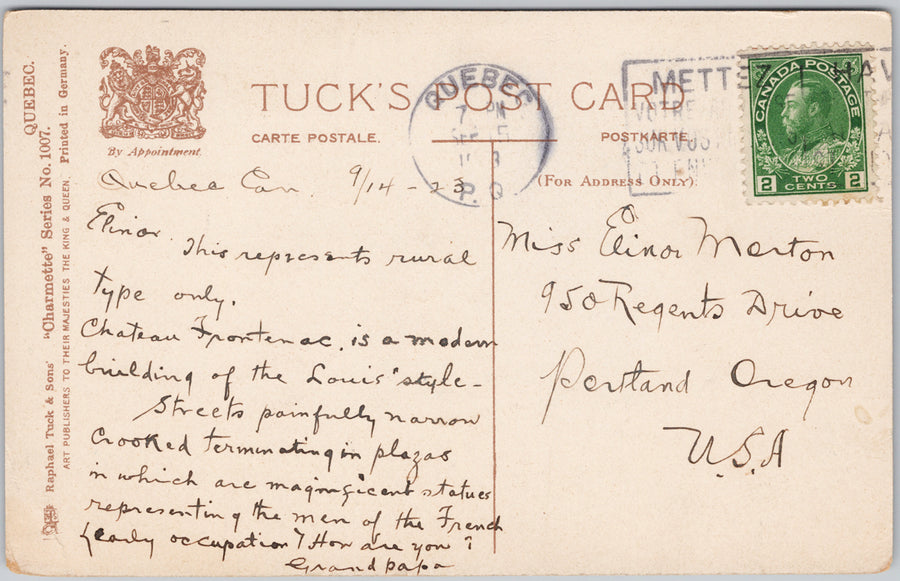 QUEBEC.
"Charmette" Series No. 1007.
Printed in Germany.
Raphael Tuck & Sons'
ART PUBLISHERS TO THEIR MAJESTIES THE KING & QUEEN.
By Appointment.
TUCK'S POST CARD
CARTE POSTALE.
POSTKARTE.
(FOR ADDRESS ONLY).
QUEBEC
7 PM
P.Q.
METTEZ
VOTRE
SUR VOS
CANADA POSTAGE
2 TWO CENTS 2
Quebec Can. 9/14-23
Elinor.
This represents rural
type only.
Chateau Frontenac. is a modern
building of the Louis' style -
Streets painfully narrow
Crooked terminating in plazas
in which are magnificent statues
representing the men of the French
{early occupation} How are you?
Grandpapa
Miss Elinor Merton
950 Regents Drive
Portland Oregon
U.S.A